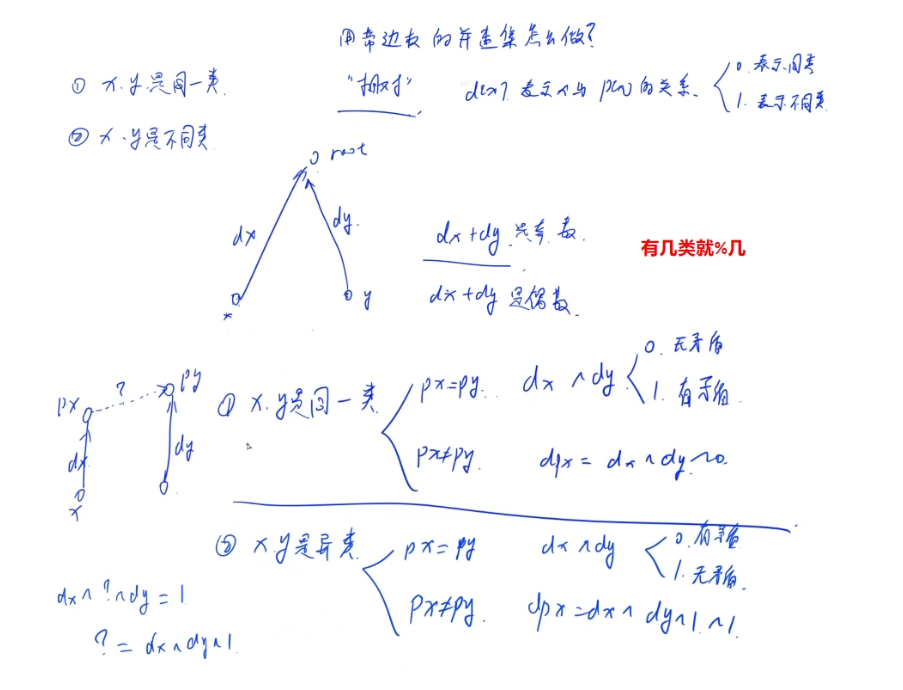 用带边权的并查集怎么做?
① x.y是同一类.
"相对"
d[x]? 表示x与p[x]的关系.
0. 表示同类
1. 表示不同类
② x.y是不同类
root
dx
dy.
x
y
dx+dy 是奇数.
dx+dy 是偶数.
有几类就%几
px
?
py
dx
dy
x
① x.y是同一类
px=py.
dx ^ dy
0. 无矛盾
1. 有矛盾
px≠py.
dpx = dx ^ dy ^ 0.
② x.y是异类
px = py
dx ^ dy
0. 有矛盾
1. 无矛盾.
px≠py.
dpx = dx ^ dy ^ 1. ^ 1.
dx ^ ? ^ dy = 1
? = dx ^ dy ^ 1